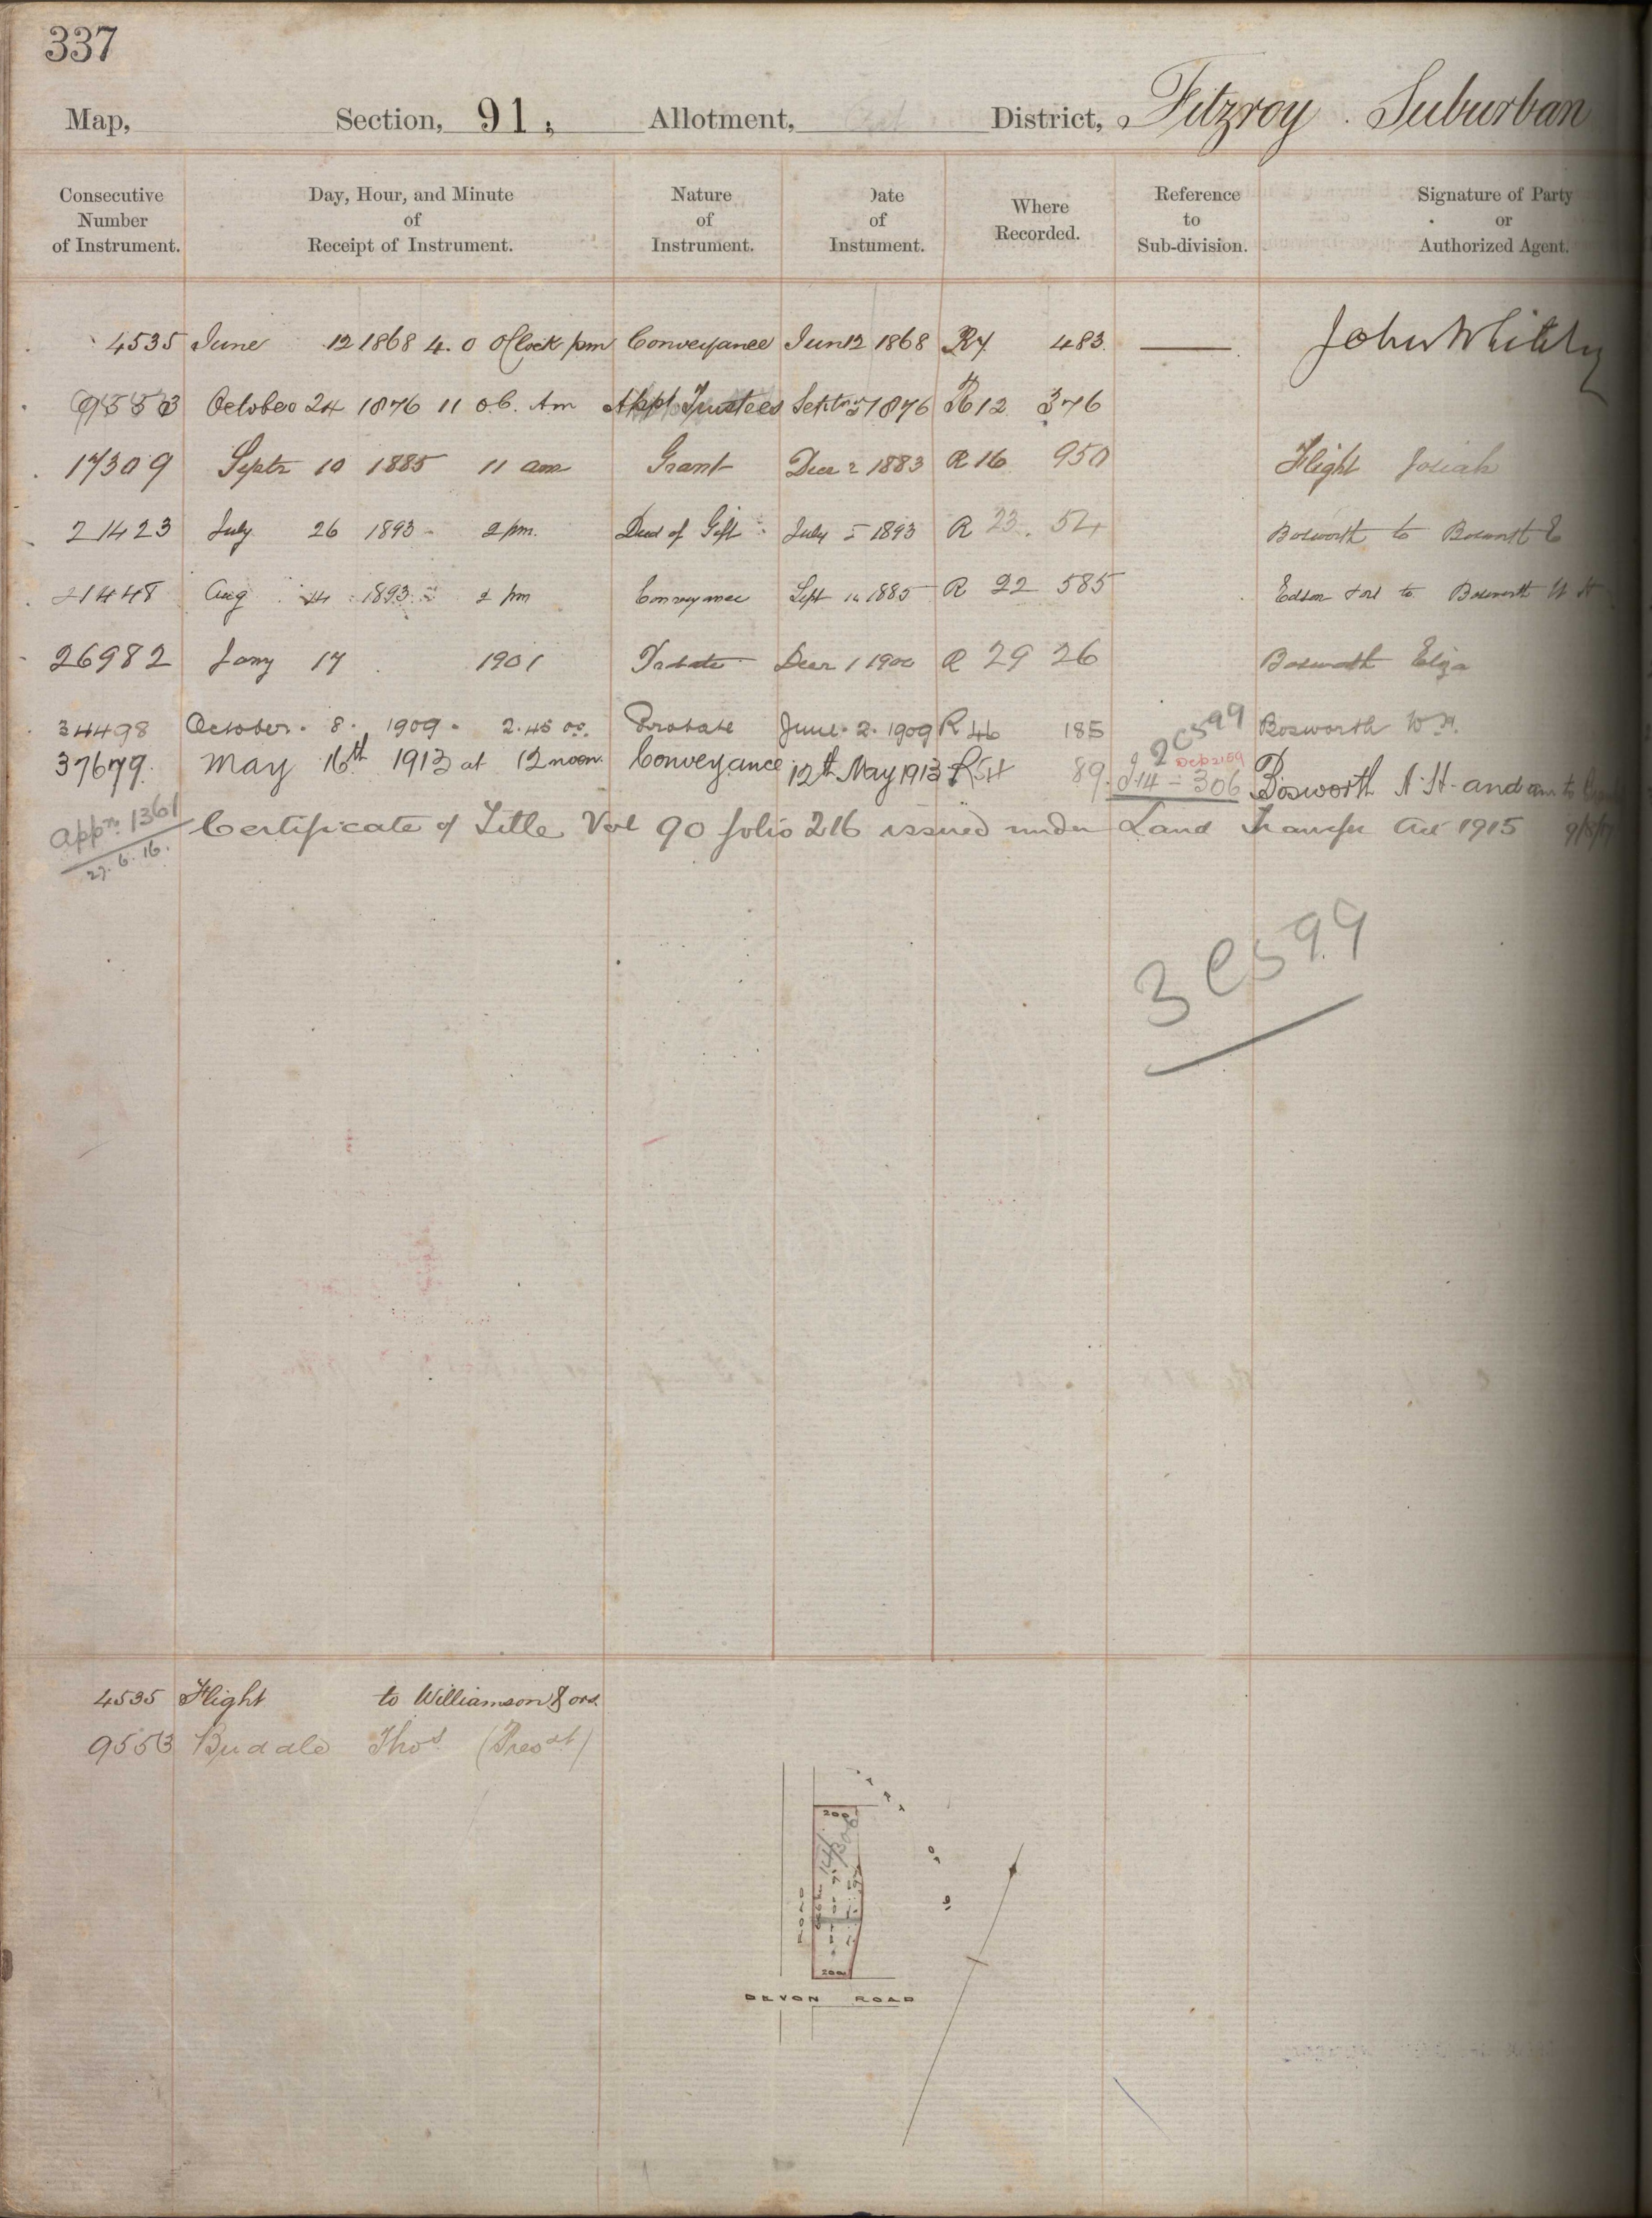 337
Map, Section, 91; Allotment, District, Fitzroy Suburban
Consecutive Number of Instrument. Day, Hour, and Minute of Receipt of Instrument. Nature of Instrument. Date of Instument. Where Recorded. Reference to Sub-division. Signature of Party or Authorized Agent.
4535 June 12 1868 4. 0 O'Clock pm Conveyance Jun 12 1868 R7 483 John Whitely
9553 October 24 1876 11 o.C. Am Appt Trustees 1876 R12 376
17309 Septr 10 1885 11 am Grant Decr 2 1883 R 16 950 Flight Josiah
21423 July 26 1893 2 pm. Deed of Gift July 5 1893 R 23. 54 Bosworth to Bosworth E
21448 Aug 14 1893 2 pm Conveyance Sept 10 1885 R 22 585 to Bosworth W H
26982 Jany 17 1901 Probate Decr 1 1900 R 29 26 Bosworth Eliza
34498 October. 8. 1909. 2.45 Probate June. 2. 1909 R 46 185 Bosworth W.H.
37679. May 16th 1913 at 12 noon. Conveyance 12th May 1913 R54 89. 2C599 Dep 2159 J.14 = 306 Bosworth A. H. and anr to
appn 1361 Certificate of Title Vol 90 folio 216 issued under Land Transfer Act 1915
27. 6. 16.
3 C599
4535 Flight to Williamson & ors
9553 Buddle Thos (Presdt)
200
ROAD
200
DEVON ROAD